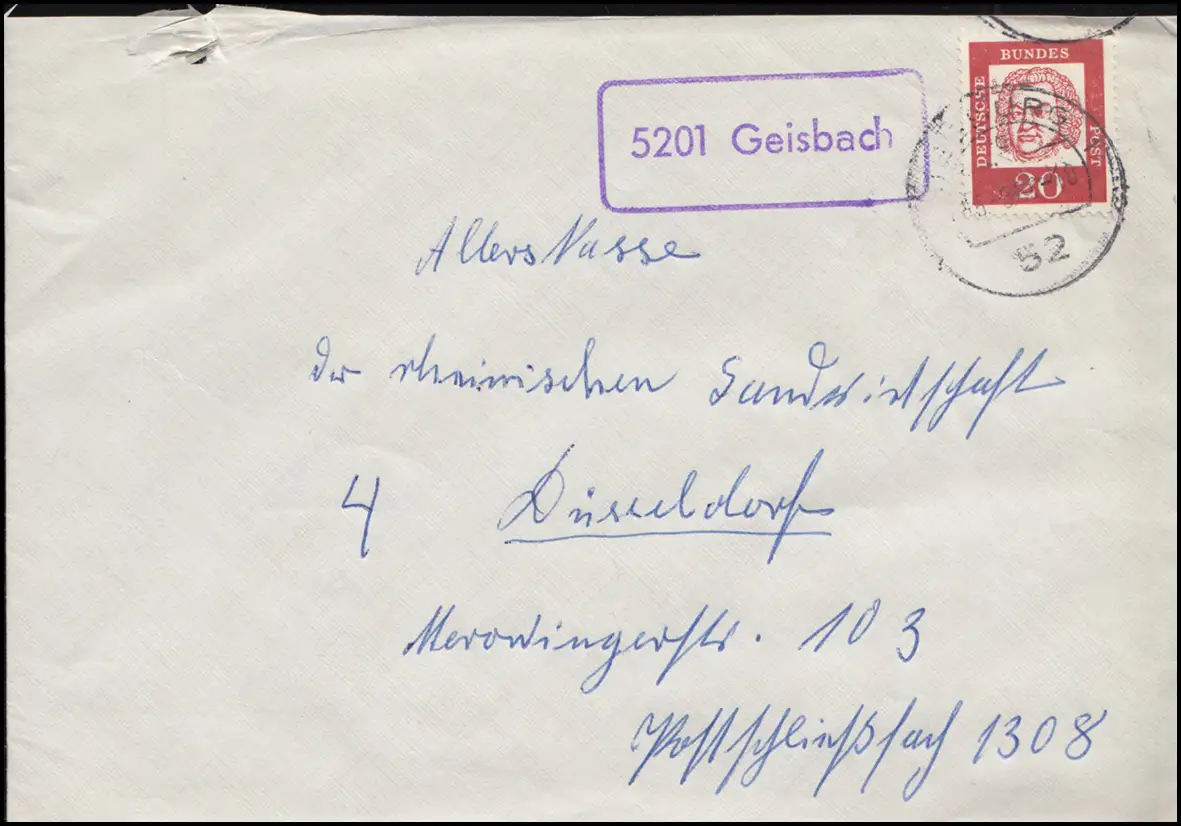 BUNDES
DEUTSCHE
POST
20
5201 Geisbach
52
Alterskasse
der rheinischen Landwirtschaft
4 Düsseldorf
Merowingerstr. 103
Postschließfach 1308